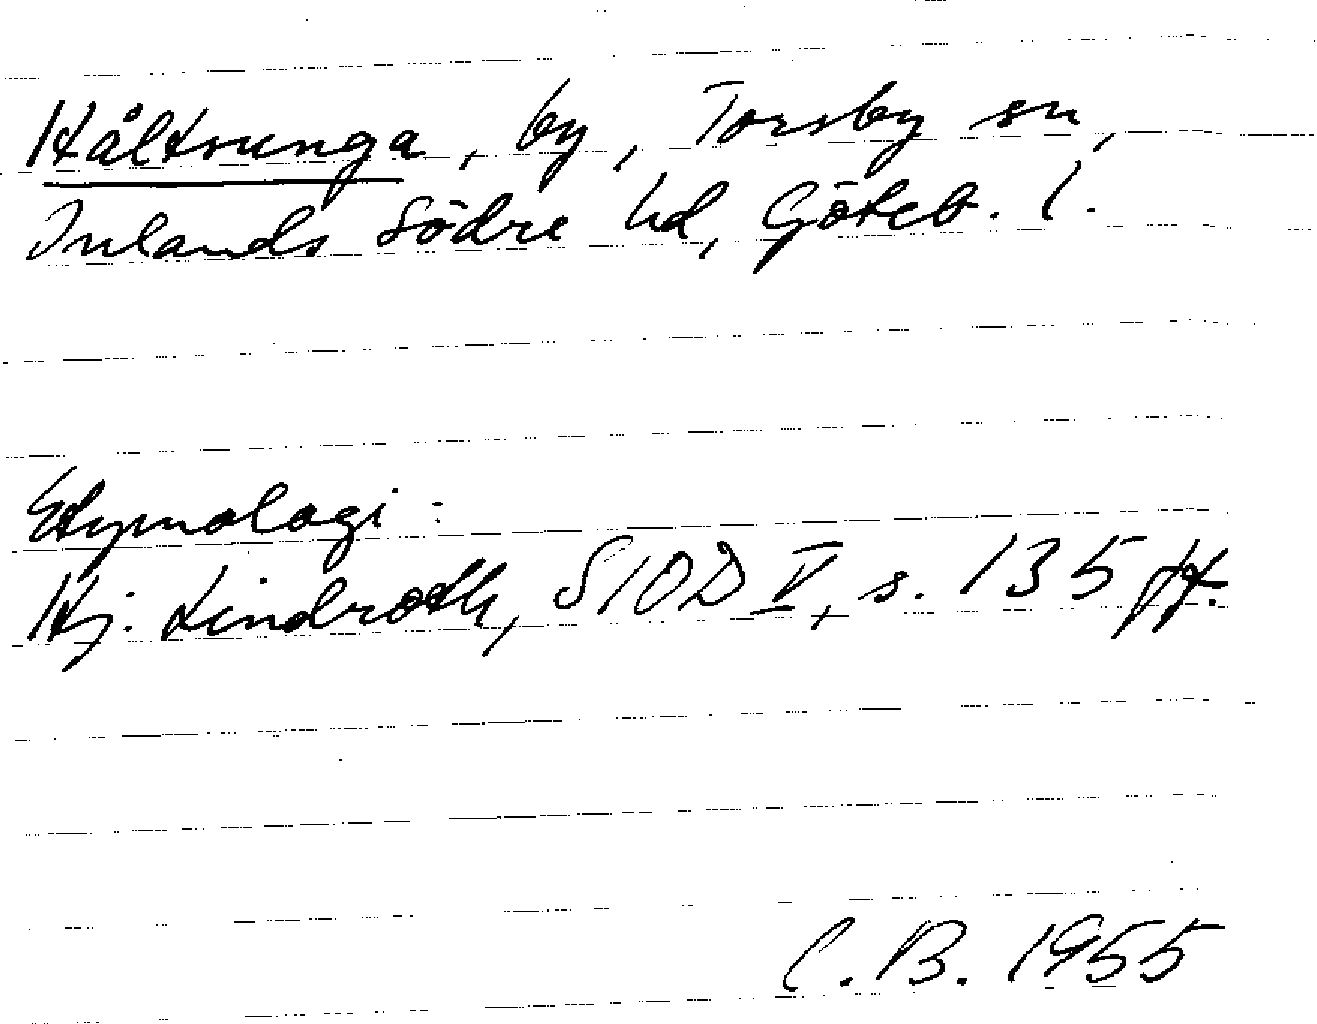 Håltsunga, by, Torsby sn,
Inlands Södre hd, Göteb. l.
Etymologi:
Hj. Lindroth, SIOD V, s. 135 ff.
C. B. 1955